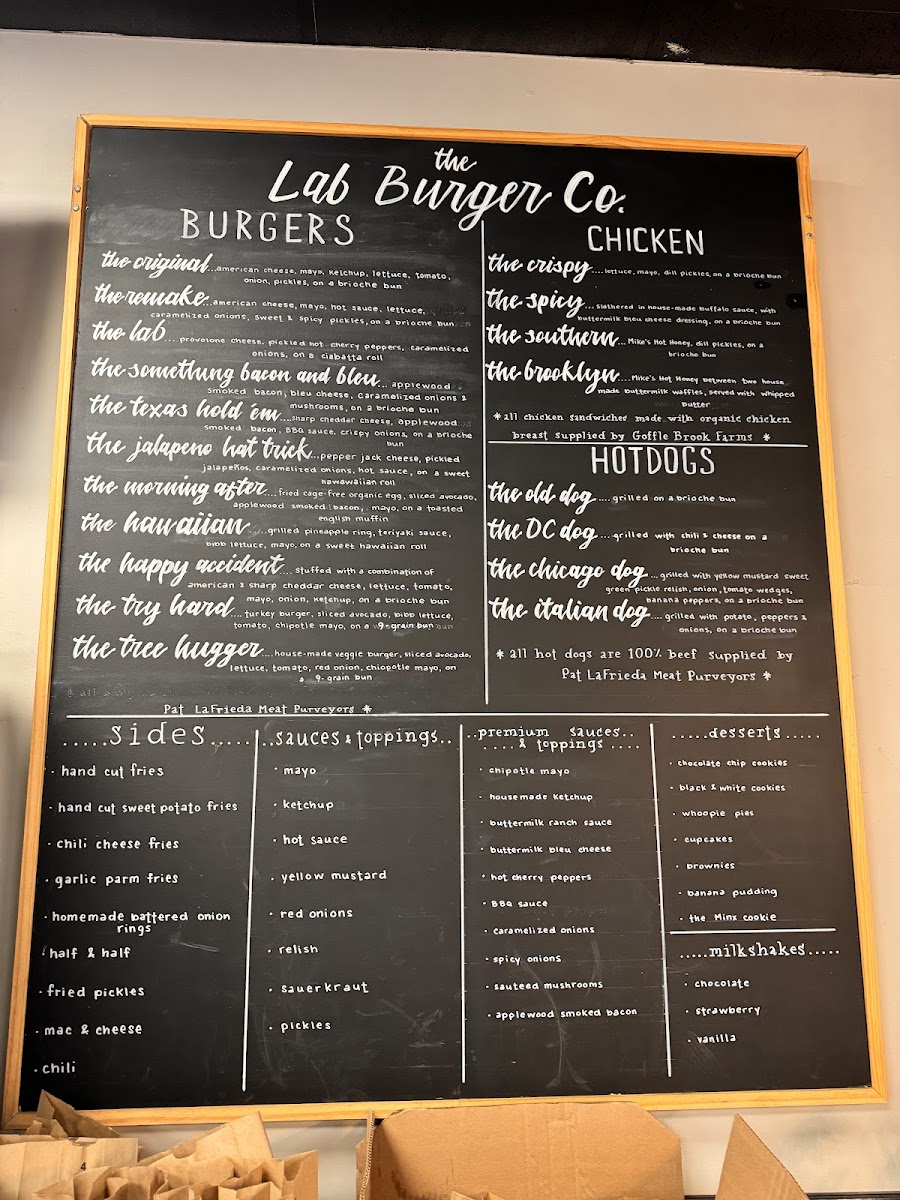 the
Lab Burger Co.
BURGERS
the original...american cheese, mayo, ketchup, lettuce, tomato,
onion, pickles, on a brioche bun
the remake...american cheese, mayo, hot sauce, lettuce,
caramelized onions, sweet & spicy pickles, on a brioche bun
the lab.... provolone cheese, pickled hot cherry peppers, caramelized
onions, on a ciabatta roll
the something bacon and bleu... applewood
smoked bacon, bleu cheese, caramelized onions &
mushrooms, on a brioche bun
the texas hold 'em....sharp cheddar cheese, applewood
smoked bacon, BBQ sauce, crispy onions, on a brioche
bun
the jalapeno hat trick...pepper jack cheese, pickled
jalapeños, caramelized onions, hot sauce, on a sweet
hawawaiian roll
the morning after...fried cage-free organic egg, sliced avocado,
applewood smoked bacon, mayo, on a toasted
english muffin
the hawaiian.....grilled pineapple ring, teriyaki sauce,
bibb lettuce, mayo, on a sweet hawaiian roll
the happy accident... stuffed with a combination of
american & sharp cheddar cheese, lettuce, tomato,
mayo, onion, ketchup, on a brioche bun
the try hard...turkey burger, sliced avocado, bibb lettuce,
tomato, chipotle mayo, on a 9-grain bun
the tree hugger....house-made veggie burger, sliced avocado,
lettuce, tomato, red onion, chiopotle mayo, on
a 9-grain bun
Pat LaFrieda Meat Purveyors *
CHICKEN
the crispy....lettuce, mayo, dill pickles, on a brioche bun
the spicy....slathered in house-made buffalo sauce, with
buttermilk bleu cheese dressing, on a brioche bun
the southern...Mike's Hot Honey, dill pickles, on a
brioche bun
the brooklyn....Mike's Hot Honey between two house
made buttermilk waffles, served with whipped
butter
*all chicken sandwiches made with organic chicken
breast supplied by Goffle Brook Farms *
HOTDOGS
the old dog....grilled on a brioche bun
the DC dog....grilled with chili & cheese on a
brioche bun
the chicago dog...grilled with yellow mustard sweet
green pickle relish, onion, tomato wedges,
banana peppers, on a brioche bun
the italian dog....grilled with potato, peppers &
onions, on a brioche bun
* all hot dogs are 100% beef supplied by
Pat LaFrieda Meat Purveyors *
.....sides.....
· hand cut fries
· hand cut sweet potato fries
· chili cheese fries
· garlic parm fries
· homemade battered onion
rings
· half & half
· fried pickles
· mac & cheese
· chili
..sauces & toppings..
· mayo
· ketchup
· hot sauce
· yellow mustard
· red onions
· relish
· sauerkraut
· pickles
..premium sauces..
....& toppings ....
· chipotle mayo
· housemade ketchup
· buttermilk ranch sauce
· buttermilk bleu cheese
· hot cherry peppers
· BBQ sauce
· caramelized onions
· spicy onions
· sauteed mushrooms
· applewood smoked bacon
.....desserts.....
· chocolate chip cookies
· black & white cookies
· whoopie pies
· cupcakes
· brownies
· banana pudding
· the Minx cookie
.....milkshakes.....
· chocolate
· strawberry
· vanilla
4